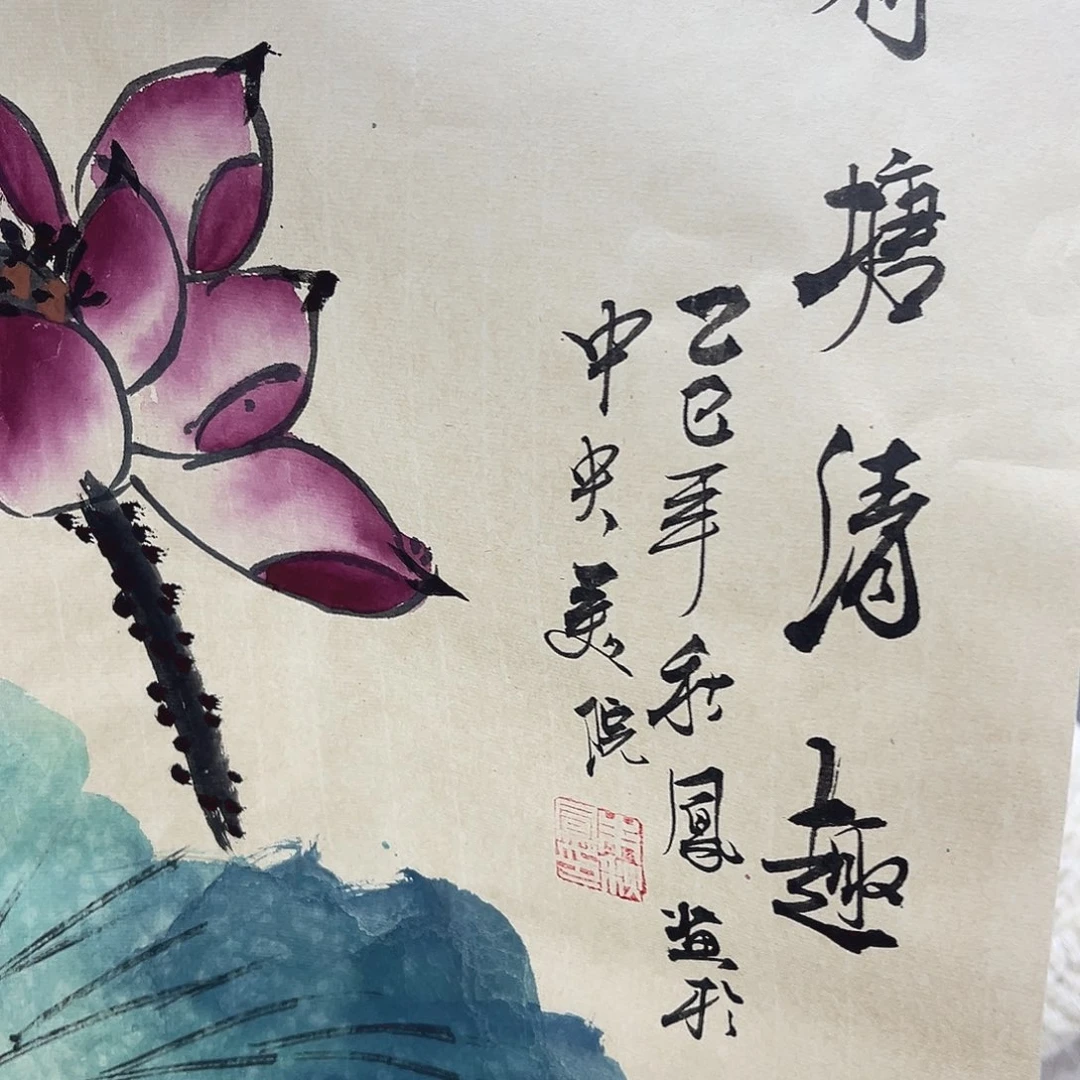 塘清趣
乙巳年秋鳳画於
中央美院